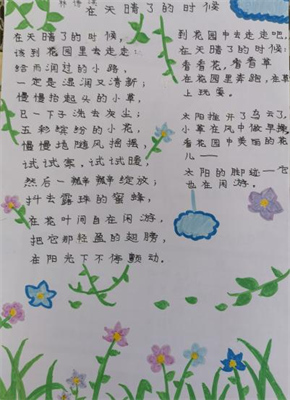 在天晴了的时候
在天晴了的时候，
该到花园里去走走：
给雨润过的小路，
一定是湿润又清新；
慢慢抬起头的小草，
已一下子洗去灰尘；
五彩缤纷的小花，
慢慢地随风摇摇，
试试寒，试试暖，
然后一瓣瓣绽放；
抖去露珠的蜜蜂，
在花叶间自在闲游，
把它那轻盈的翅膀，
在阳光下不停颤动。
到花园中去走走吧，
在天晴了的时候：
看看花，看看草
在花园里奔跑，在草
上玩耍。
太阳推开了乌云了，
小草在风中做早操，
看花园中美丽的花
儿——
太阳的脚迹一它
也在闲游。